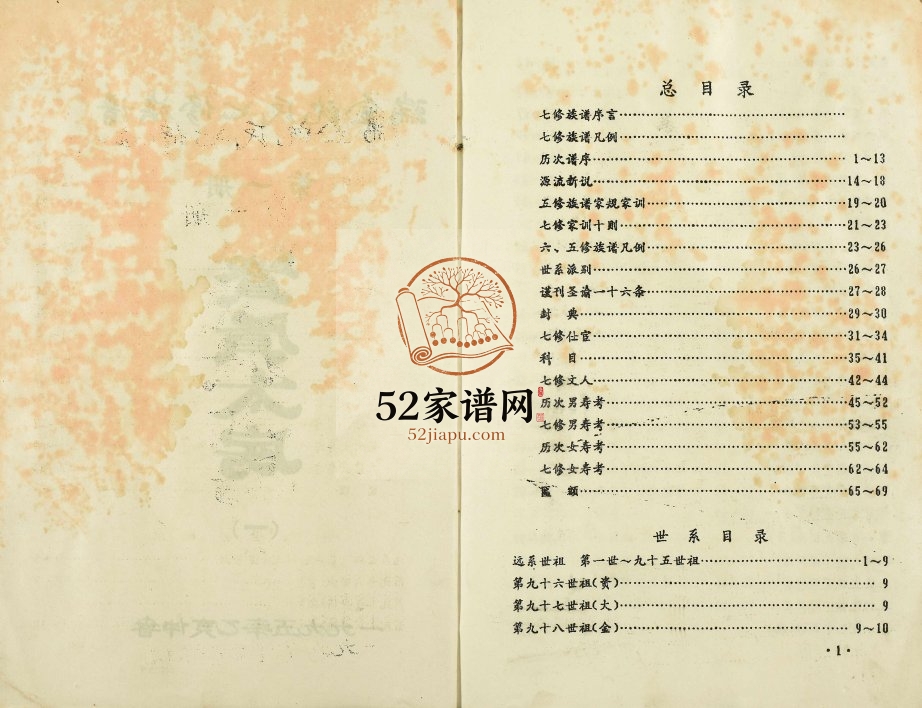 总目录
七修族谱序言
七修族谱凡例
历次谱序 1～13
源流新说 14～18
五修族谱家规家训 19～20
七修家训十则 21～23
六、五修族谱凡例 23～26
世系派别 26～27
谨刊圣谕一十六条 27～28
封典 29～30
七修仕宦 31～34
科目 35～41
七修文人 42～44
历次男寿考 45～52
七修男寿考 53～55
历次女寿考 55～62
七修女寿考 62～64
匾额 65～69
世系目录
远系世祖 第一世～九十五世祖 1～9
第九十六世祖(贵) 9
第九十七世祖(大) 9
第九十八世祖(金) 9～10
·1·
52家谱网
52jiapu.com